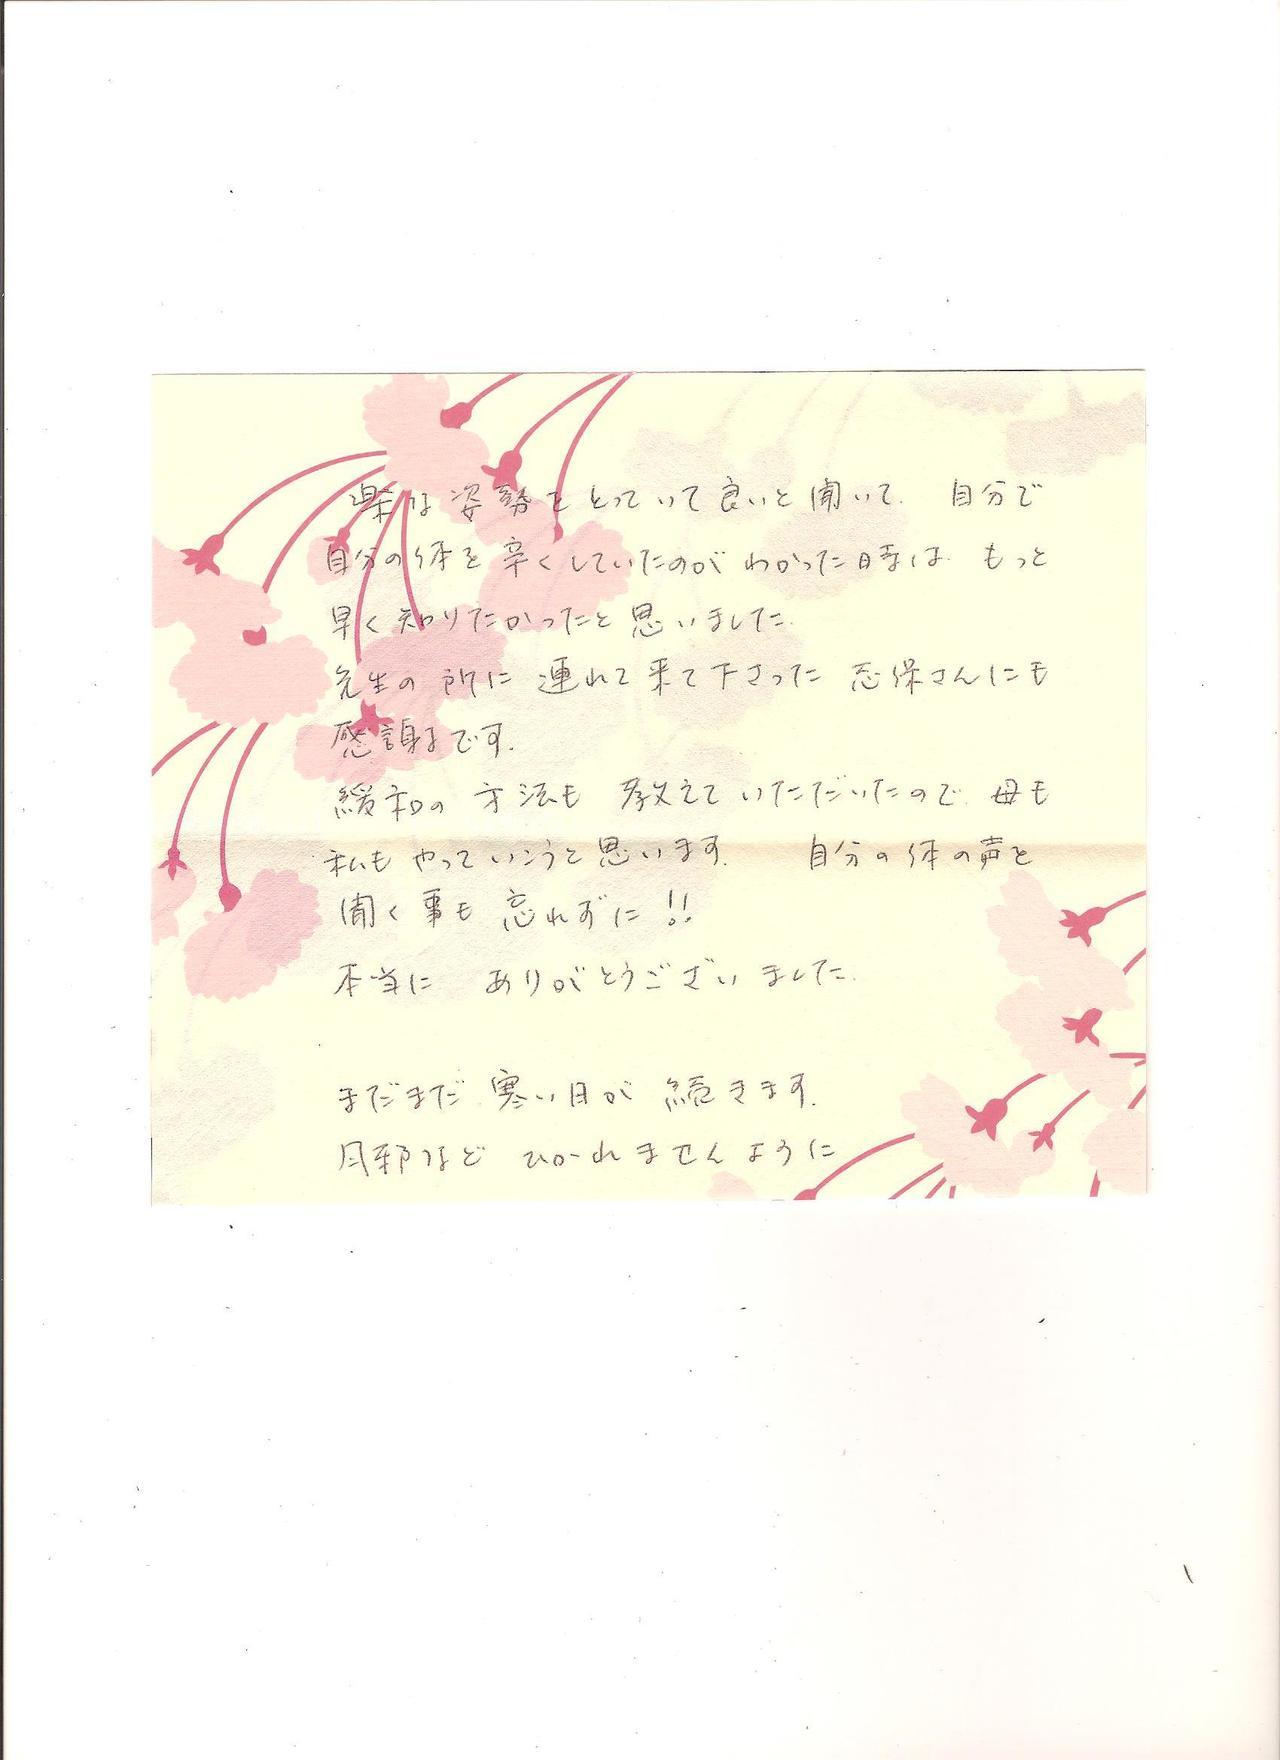 楽な姿勢をとっていて良いと聞いて、自分で
自分の体を辛くしていたのがわかった時は、もっと
早く知りたかったと思いました。
先生の所に連れて来て下さった志保さんにも
感謝です。
緩和の方法も教えていただいたので、母も
私もやっていこうと思います。 自分の体の声を
聞く事も忘れずに!!
本当に ありがとうございました。
まだまだ寒い日が続きます。
風邪などひかれませんように